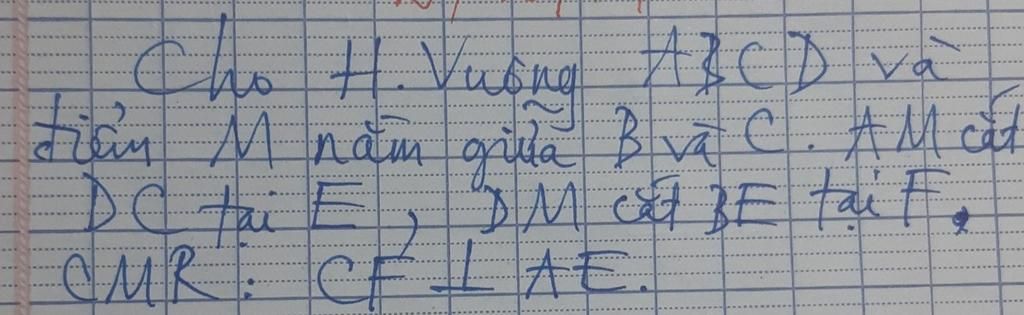 Cho H.Vuông ABCD và
điểm M nằm giữa B và C. AM cắt
DC tại E, DM cắt BE tại F.
CMR: CF ⊥ AE.